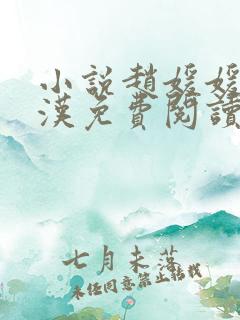 小說趙媛媛
漢免費閱讀
七月未落
未經同意禁止轉載